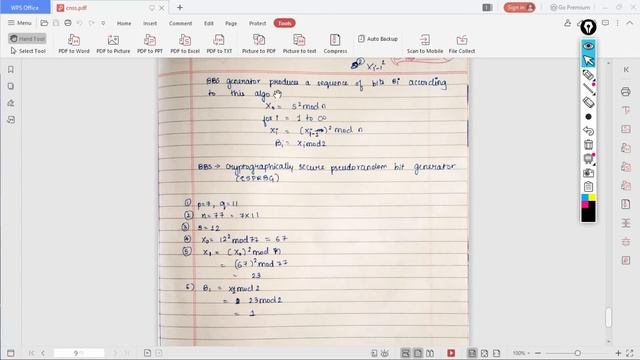 WPS Office
cnss.pdf
Sign in
Go Premium
Menu
Home
Insert
Comment
Edit
Page
Protect
Tools
Hand Tool
Select Tool
PDF to Word
PDF to Picture
PDF to Excel
PDF to PPT
PDF to TXT
Picture to PDF
Picture to text
Compress
Auto Backup
Scan to Mobile
File Collection
X i-1 2
BBS generator produces a sequence of bits Bi according
to this algo :
X0 = S² mod n
for i = 1 to ∞
Xi = (Xi-1)² mod n
Bi = Xi mod 2
BBS → cryptographically secure pseudorandom bit generator
(CSPRBG)
① p=7, q=11
② n=77 = 7×11
③ S=12
④ X0= 12² mod 77 = 67
⑤ X1 = (X0)² mod n
= (67)² mod 77
= 23
6) B1 = X1 mod 2
= 23 mod 2
= 1
9
100%